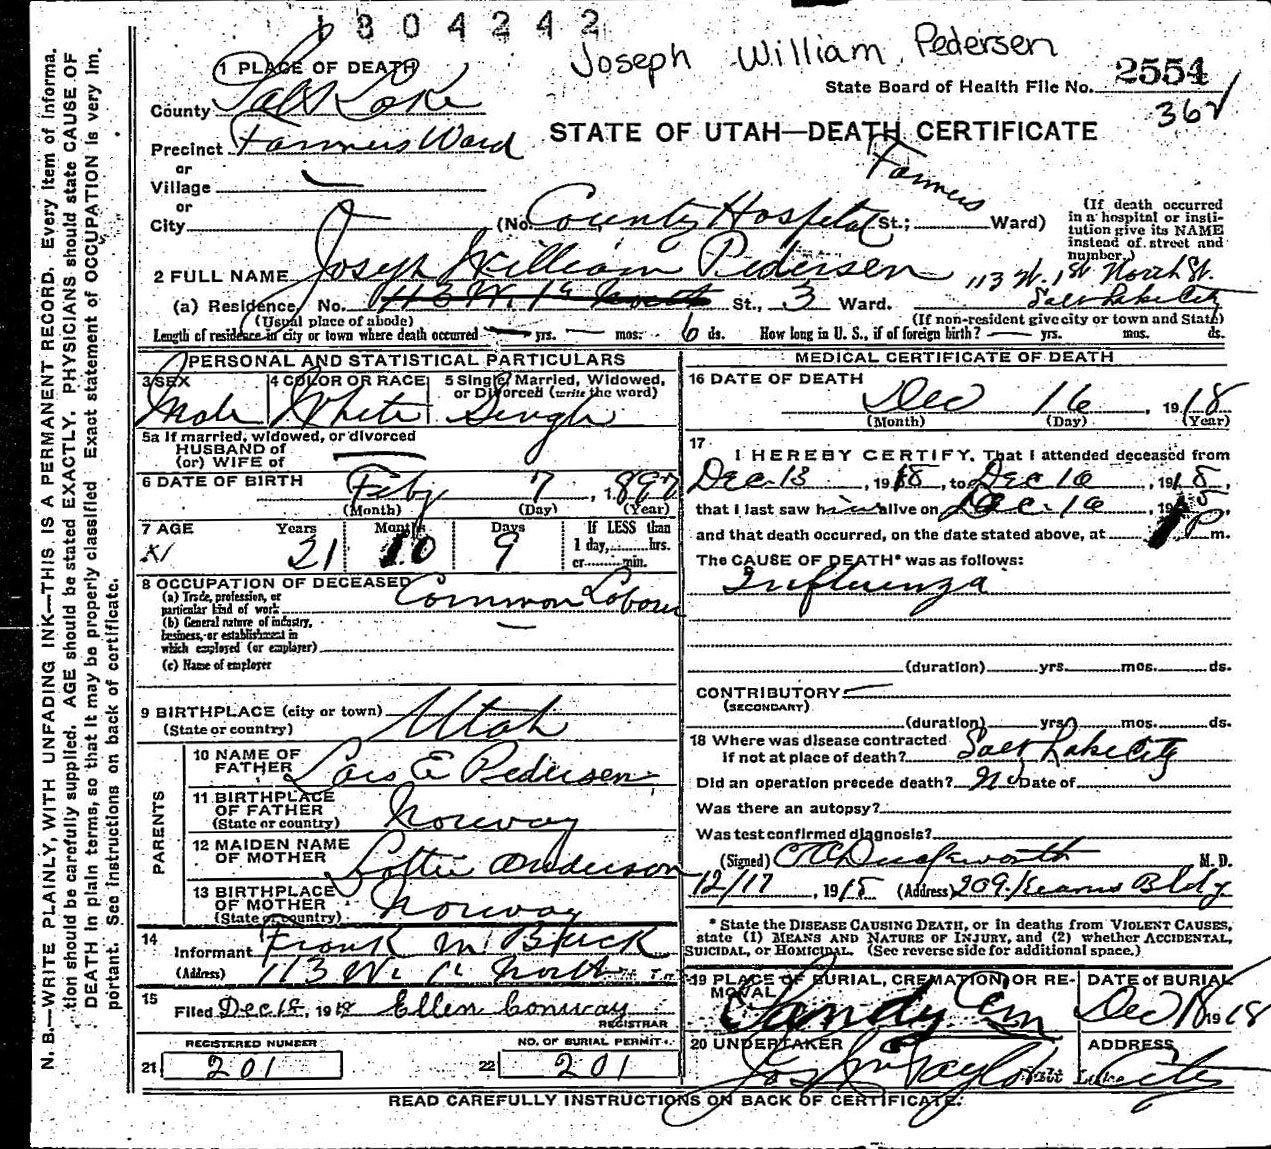 1304242
Joseph William Pedersen
1 PLACE OF DEATH
State Board of Health File No. 2554
County Salt Lake
362
STATE OF UTAH—DEATH CERTIFICATE
Precinct Farmers Ward
or
Village
or
City (No. County Hospital St.; Farmers Ward)
(If death occurred in a hospital or institution give its NAME instead of street and number.)
2 FULL NAME Joseph William Pedersen
113 W. 1st North St.
(a) Residence, No. 113 W. 1st North St., 3 Ward. Salt Lake City
(Usual place of abode) (If non-resident give city or town and State)
Length of residence in city or town where death occurred — yrs. — mos. 6 ds. How long in U. S., if of foreign birth? — yrs. mos. ds.
PERSONAL AND STATISTICAL PARTICULARS
3 SEX Male
4 COLOR OR RACE White
5 Single, Married, Widowed, or Divorced (write the word) Single
5a If married, widowed, or divorced
HUSBAND of
(or) WIFE of
6 DATE OF BIRTH Feby 7, 1897
(Month) (Day) (Year)
7 AGE Years Months Days If LESS than
21 10 9 1 day, hrs.
or min.
8 OCCUPATION OF DECEASED
(a) Trade, profession, or particular kind of work Common Labour
(b) General nature of industry, business, or establishment in which employed (or employer)
(c) Name of employer
9 BIRTHPLACE (city or town) Utah
(State or country)
PARENTS
10 NAME OF FATHER Lars E Pedersen
11 BIRTHPLACE OF FATHER Norway
(State or country)
12 MAIDEN NAME OF MOTHER Lottie Anderson
13 BIRTHPLACE OF MOTHER Norway
(State or country)
14 Informant Frank M
(Address) 113 W. 1st North
15 Filed Dec 18, 1918 Ellen Conway
REGISTRAR
REGISTERED NUMBER
21 201
NO. OF BURIAL PERMIT
22 201
MEDICAL CERTIFICATE OF DEATH
16 DATE OF DEATH
Dec 16, 1918
(Month) (Day) (Year)
17 I HEREBY CERTIFY, That I attended deceased from
Dec. 13, 1918, to Dec 16, 1918,
that I last saw him alive on Dec. 16, 1918,
and that death occurred, on the date stated above, at 1 P m.
The CAUSE OF DEATH* was as follows:
Influenza
(duration) yrs. mos. ds.
CONTRIBUTORY
(SECONDARY)
(duration) yrs. mos. ds.
18 Where was disease contracted
If not at place of death? Salt Lake City
Did an operation precede death? No Date of
Was there an autopsy?
Was test confirmed diagnosis?
(Signed) Duckworth M. D.
12/17, 1918 (Address) 209 Kearns Bldg
* State the DISEASE CAUSING DEATH, or in deaths from VIOLENT CAUSES,
state (1) MEANS AND NATURE OF INJURY, and (2) whether ACCIDENTAL,
SUICIDAL, or HOMICIDAL. (See reverse side for additional space.)
19 PLACE OF BURIAL, CREMATION, OR REMOVAL
Sandy Cem
DATE of BURIAL
Dec 18 1918
20 UNDERTAKER
Jos Wm Taylor
ADDRESS
Salt Lake City
READ CAREFULLY INSTRUCTIONS ON BACK OF CERTIFICATE.
N. B.—WRITE PLAINLY, WITH UNFADING INK—THIS IS A PERMANENT RECORD. Every item of Informa-
tion should be carefully supplied. AGE should be stated EXACTLY. PHYSICIANS should state CAUSE OF
DEATH in plain terms, so that it may be properly classified. Exact statement of OCCUPATION is very im-
portant. See instructions on back of certificate.